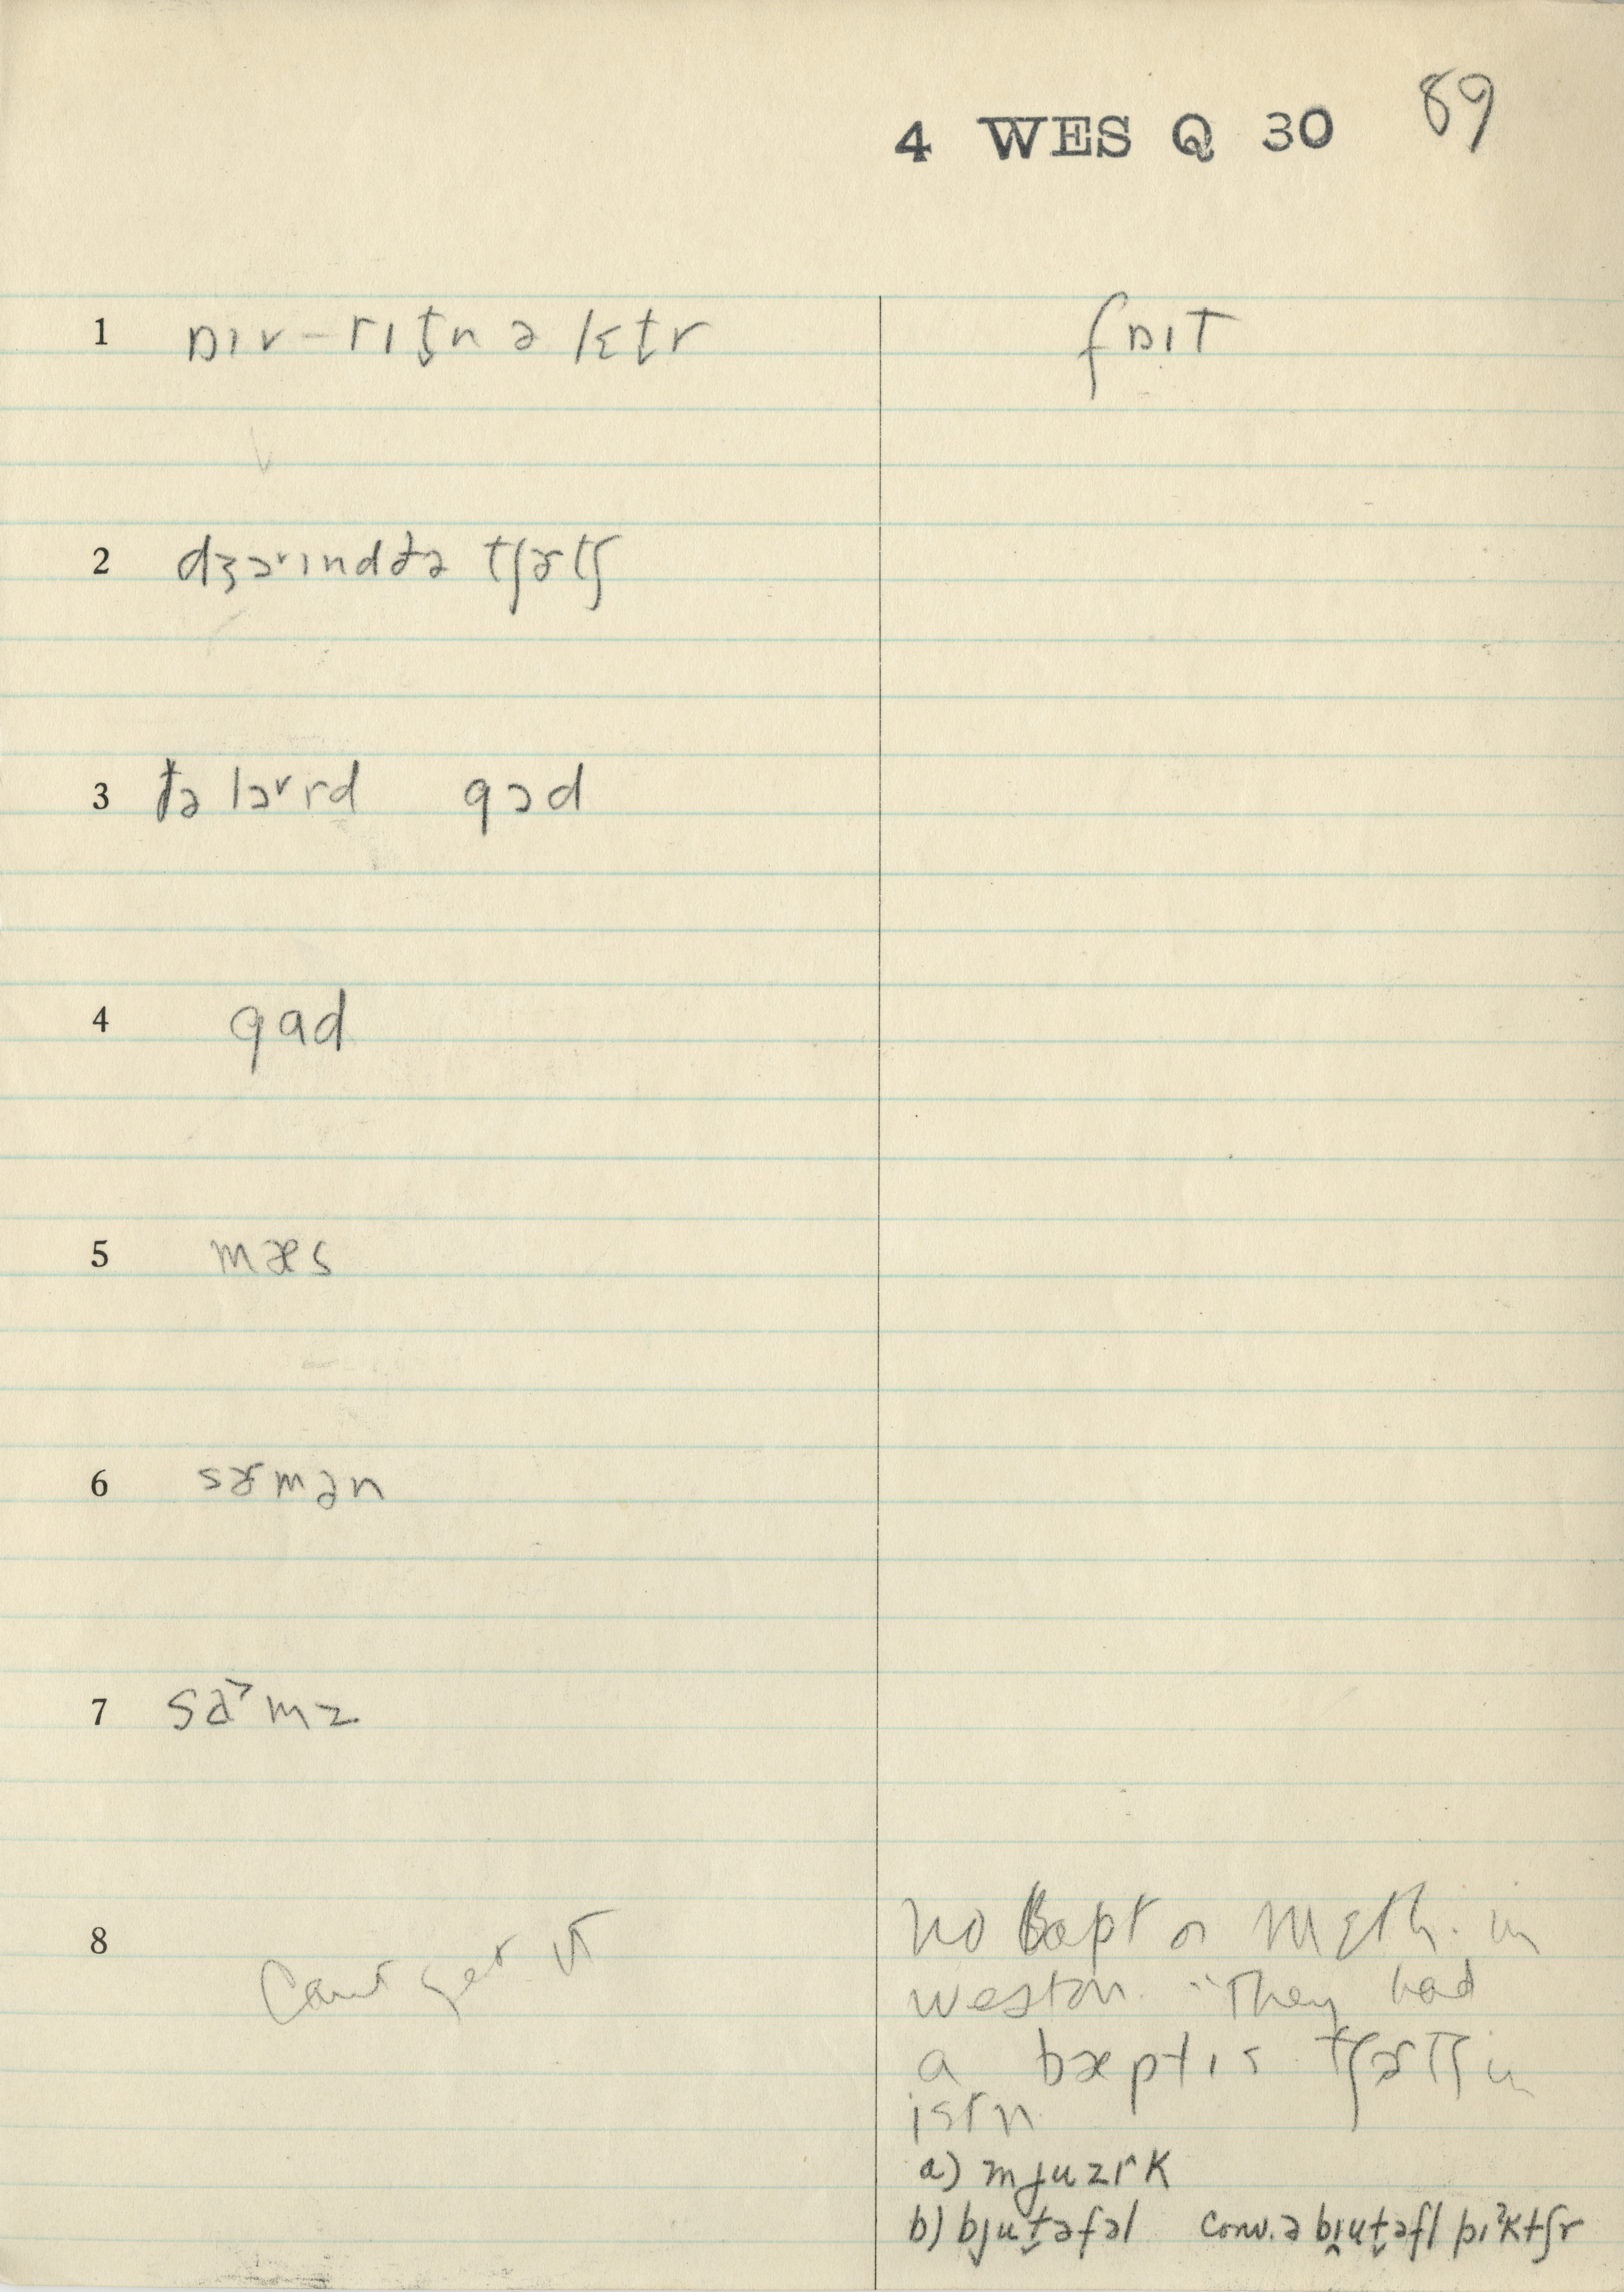 4 WES Q 30 89
1 ɒɪv–rɪt̬n ə lɛt̬r fɒɪt
2 dʒɔ˞ɪnd ðə tʃɚtʃ
3 ðə lɔ˞rd gɔd
4 gad
5 mæs
6 sɚmən
7 saᵛmz
8 Can't get it
No Bapt or Meth. in
Weston. "They had
a bæptɪs tʃɚtʃ in
istn
a) mjuzɪ^k
b) bjut̬əfəl conv. ə bɪut̬əfl pɪˀktʃr